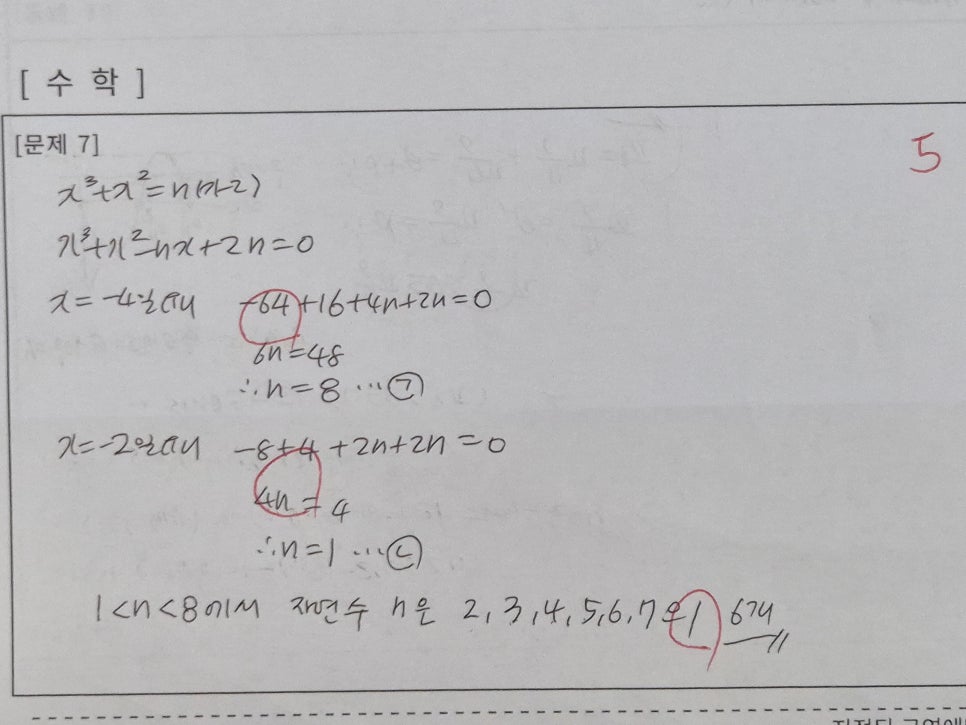 [ 수 학 ]
[문제 7]
5
x³+x²=n(x-2)
x³+x²-nx+2n=0
x=-4일 때 -64+16+4n+2n=0
6n=48
∴n=8 …㉠
x=-2일 때 -8+4+2n+2n=0
4n=4
∴n=1 …㉡
1<n<8에서 자연수 n은 2,3,4,5,6,7로 6개